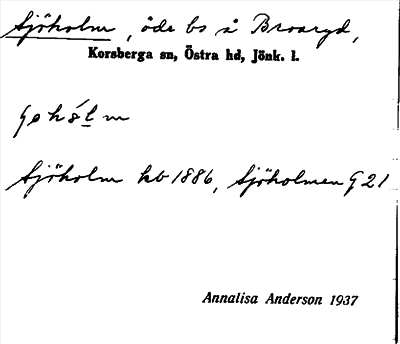 Sjöholm, öde bs å Broaryd,
Korsberga sn, Östra hd, Jönk. l.
Sjöholm kb 1886, Sjöholmen G 21
Annalisa Anderson 1937